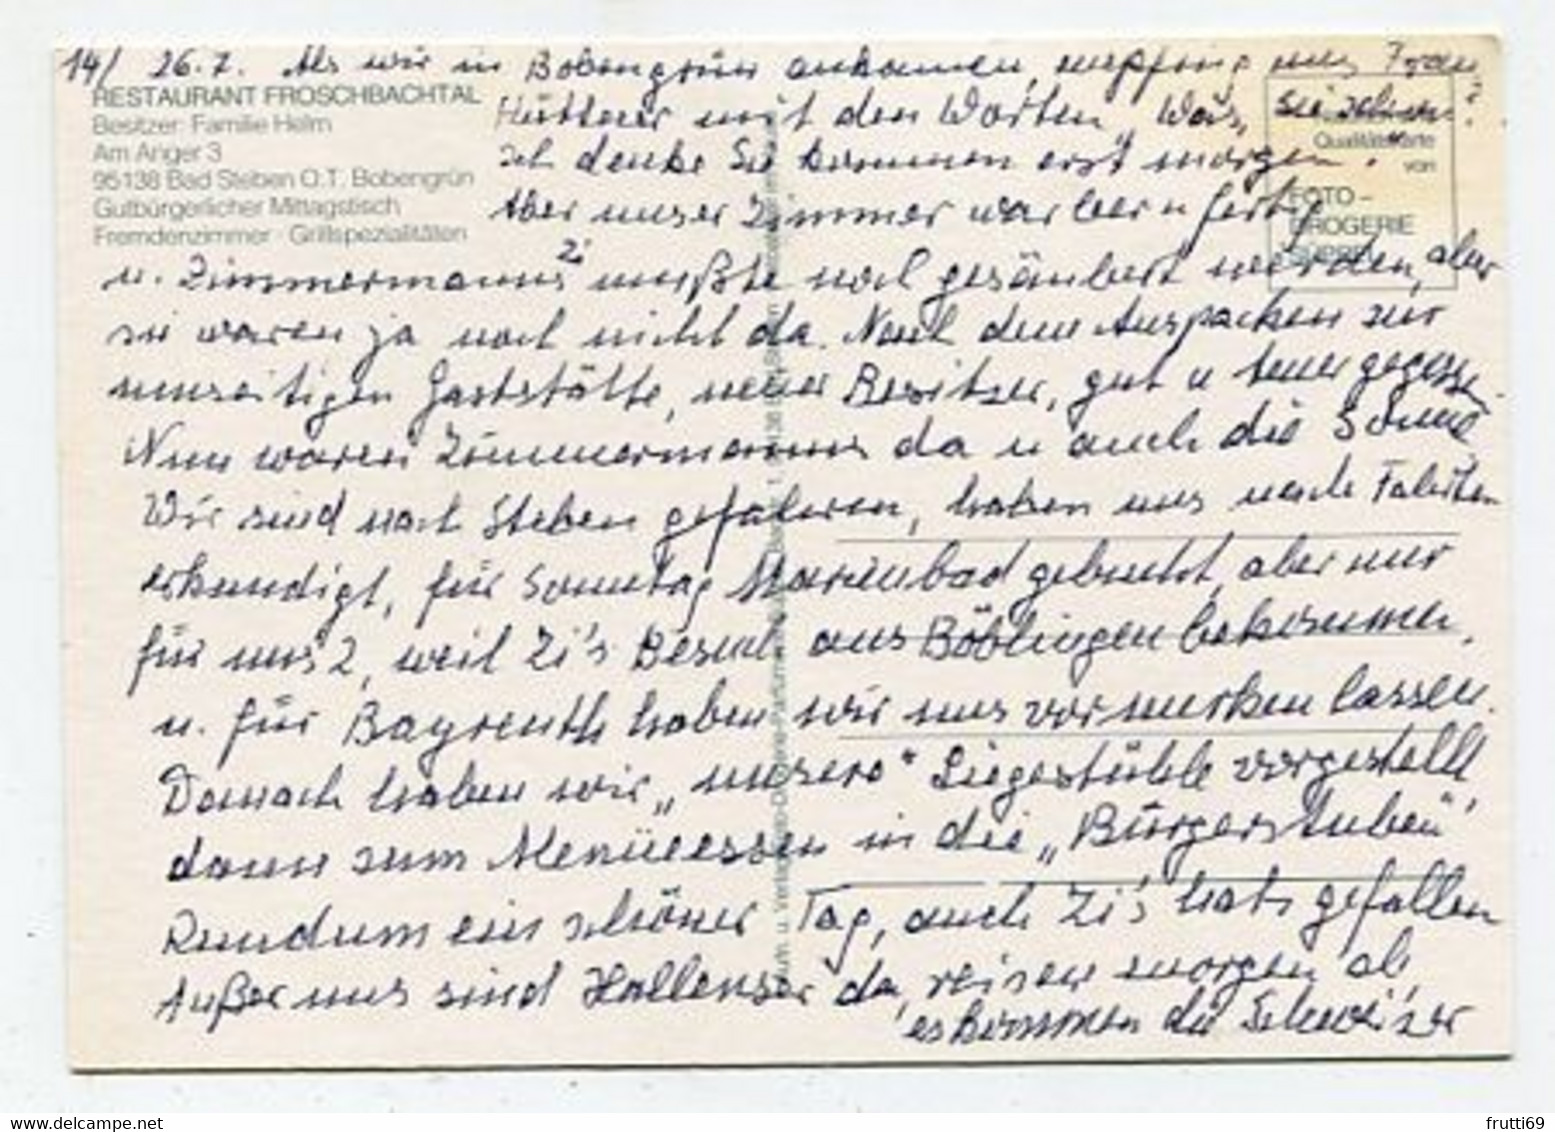 14/ 26.7. Als wir in Bobengrün ankamen, empfing uns Frau
RESTAURANT FROSCHBACHTAL
Besitzer: Familie Helm
Am Anger 3
95138 Bad Steben O.T. Bobengrün
Gutbürgerlicher Mittagstisch
Fremdenzimmer · Grillspezialitäten
Hüttner mit den Worten „Was, Sie schon?
Ich denke Sie kommen erst morgen.
Aber unser Zimmer war leer u fertig
Qualitätskarte
von
FOTO-
DROGERIE
u. Zimmermanns Zi mußte noch gesäubert werden, aber
sie waren ja noch nicht da. Nach dem Auspacken zur
Gaststätte, neuer Besitzer, gut u teuer gegessen.
Nun waren Zimmermanns da u auch die Sonne
Wir sind nach Steben gefahren, haben uns nach Fahrten
erkundigt, für Sonntag Marienbad gebucht, aber nur
für uns 2, weil Zi's Besuch aus Böblingen bekommen,
u. für Bayreuth haben wir uns vormerken lassen.
Danach haben wir „unsere“ Liegestühle vorgestellt,
dann zum Menüessen in die „Bürgerstuben“
Rundum ein schöner Tag, auch Zi's hats gefallen
Außer uns sind Hallenser da, reisen morgen ab,
es kommen die Schweizer
frutti69